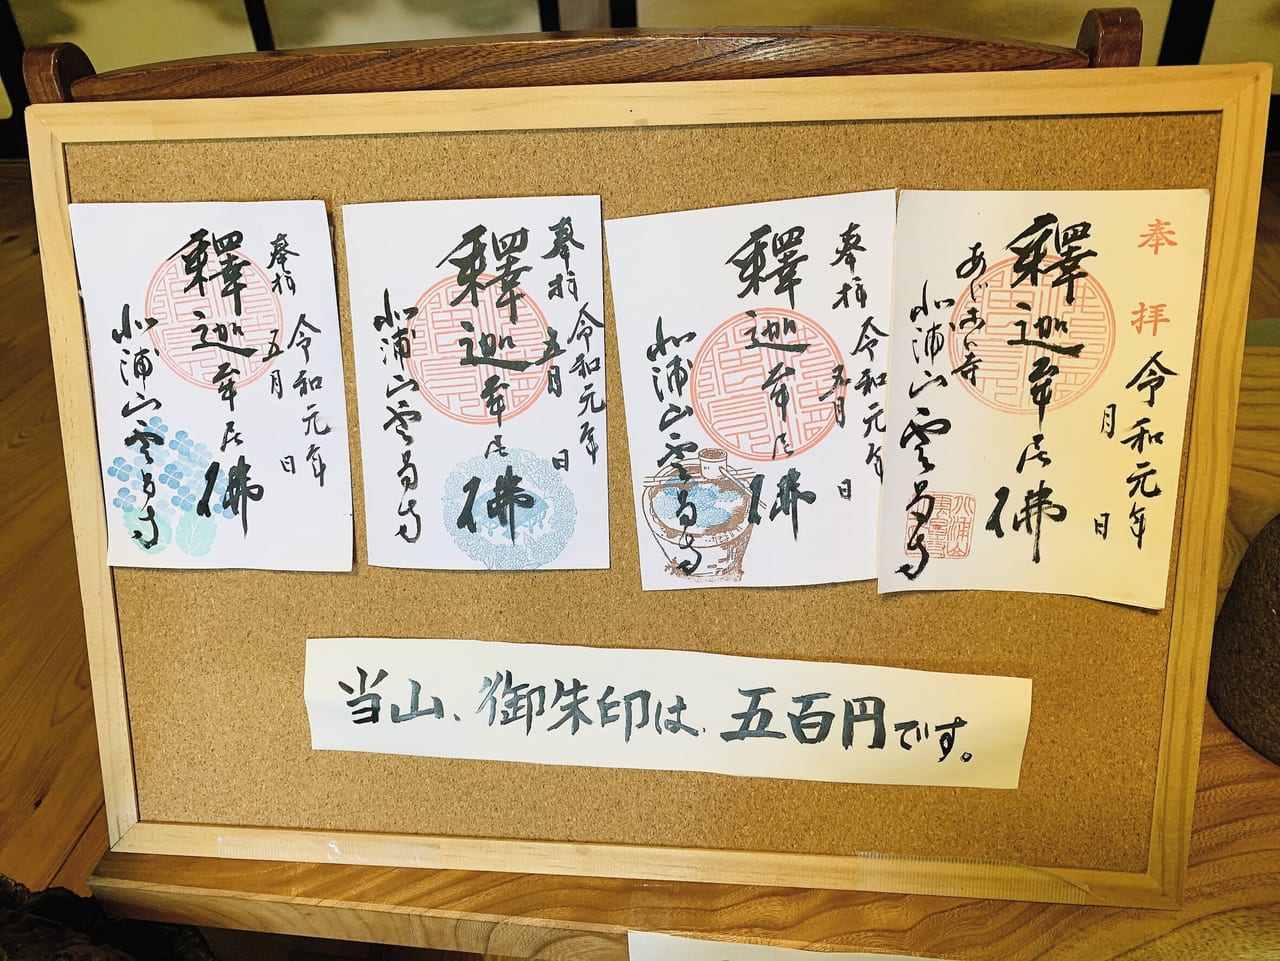 奉拝
令和元年
五月 日
釋迦牟尼佛
北浦山雲昌寺
奉拝
令和元年
五月 日
釋迦牟尼佛
北浦山雲昌寺
奉拝
令和元年
五月 日
釋迦牟尼佛
北浦山雲昌寺
奉拝
令和元年
月 日
釋迦牟尼佛
あじさい寺
北浦山雲昌寺
当山、御朱印は、五百円です。